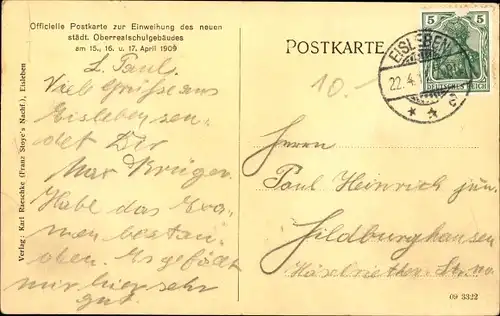 Officielle Postkarte zur Einweihung des neuen
städt. Oberrealschulgebäudes
am 15., 16. u. 17. April 1909
POSTKARTE
5 5
DEUTSCHES REICH
EISLEBEN
22.4.
* *
10.-
L. Paul.
Viele Grüsse aus
Eisleben sen-
det Dir
Max Krüger.
Habe das Exa-
men bestan-
den. Es gefällt
mir hier sehr
gut.
Herrn
Paul Heinrich jun.
Hildburghausen
Häselriether Str.
Verlag: Karl Raeschke (Franz Stoye's Nachf.), Eisleben
09 3322